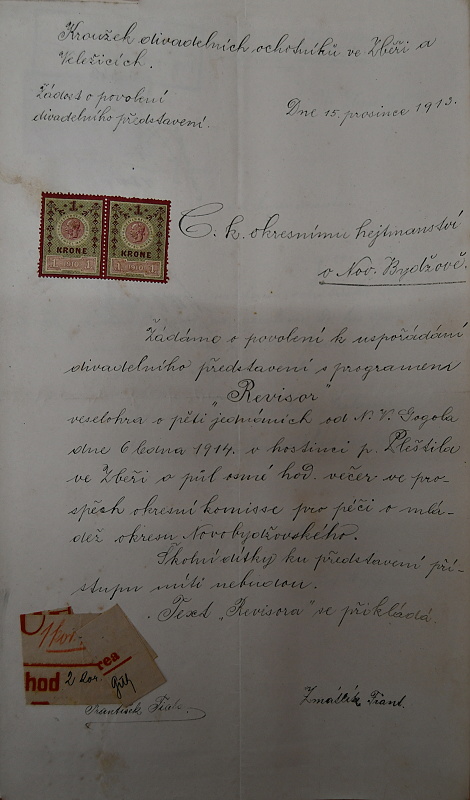 Kroužek divadelních ochotníků ve Zběři a
Veležicích.
Žádost o povolení
divadelního představení.
Dne 15. prosince 1913.
1
KRONE
1 1910 1
1
KRONE
1 1910 1
C. k. okresnímu hejtmanství
v Nov. Bydžově.
Žádáme o povolení k uspořádání
divadelního představení s programem
„Revisor“
veselohra o pěti jednáních od N. V. Gogola
dne 6 ledna 1914. v hostinci p. Pleštila
ve Zběři o půl osmé hod. večer ve pro-
spěch okresní komisse pro péči o mlá-
dež okresu Novobydžovského.
Školní dítky ku představení pří-
stupu míti nebudou.
Text „Revisora“ se přikládá.
rea
hod 2 kor.
František
Zmátlík Frant.